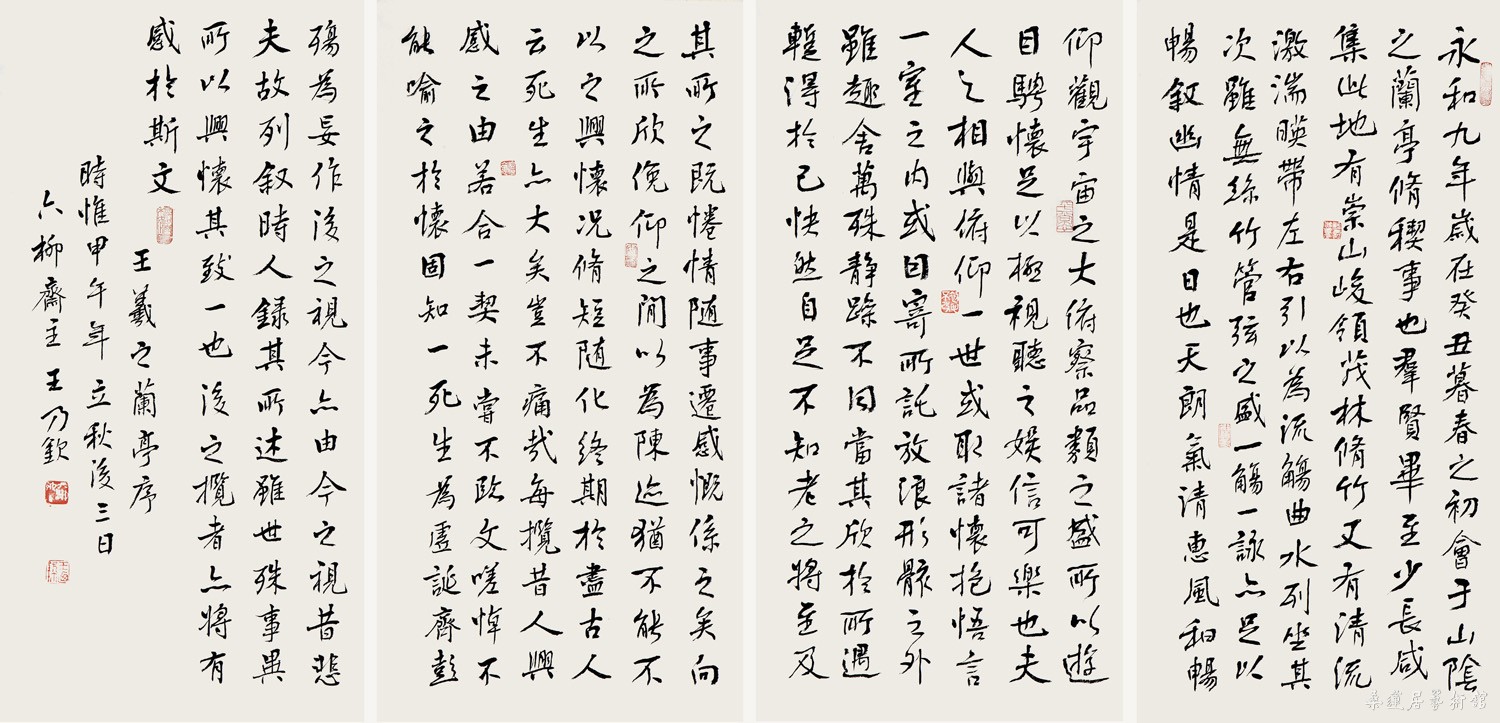 永和九年歲在癸丑暮春之初會于山陰
之蘭亭脩稧事也羣賢畢至少長咸
集此地有崇山峻領茂林脩竹又有清流
激湍暎帶左右引以為流觴曲水列坐其
次雖無絲竹管弦之盛一觴一詠亦足以
暢敘幽情是日也天朗氣清惠風和暢
仰觀宇宙之大俯察品類之盛所以遊
目騁懷足以極視聽之娛信可樂也夫
人之相與俯仰一世或取諸懷抱悟言
一室之內或因寄所託放浪形骸之外
雖趣舍萬殊靜躁不同當其欣於所遇
蹔得於己快然自足不知老之將至及
其所之既惓情隨事遷感慨係之矣向
之所欣俛仰之閒以為陳迹猶不能不
以之興懷況脩短隨化終期於盡古人
云死生亦大矣豈不痛哉每攬昔人興
感之由若合一契未嘗不臨文嗟悼不
能喻之於懷固知一死生為虛誕齊彭
殤為妄作後之視今亦由今之視昔悲
夫故列敘時人錄其所述雖世殊事異
所以興懷其致一也後之攬者亦將有
感於斯文
王羲之蘭亭序
時惟甲午年立秋後三日
六柳齋主王乃欽
桑蓮居藝術館